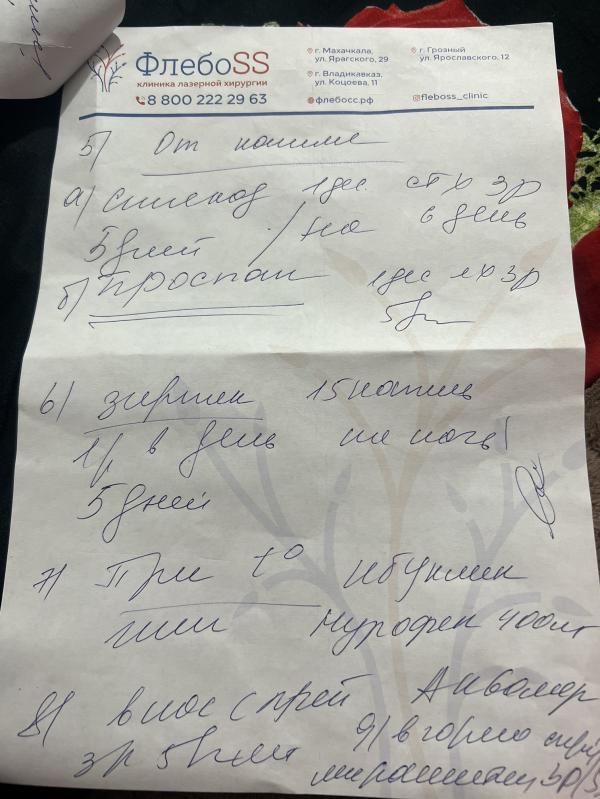 ФлебоSS
клиника лазерной хирургии
8 800 222 29 63
г. Махачкала,
ул. Ярагского, 29
г. Владикавказ,
ул. Коцоева, 11
флебосс.рф
г. Грозный
ул. Ярославского, 12
fleboss_clinic
5) От кашля
а) 1 дес. ст л 3р
5 дней / на в день
б) Проспан 1 дес л 3р
5д
6) зиртек 15 капель
1р в день на ночь
5 дней
7) При t° Ибуклин
или Нурофен 400мг
8) в нос спрей Аквамар
3р 5 дней 9) в горло
3р/